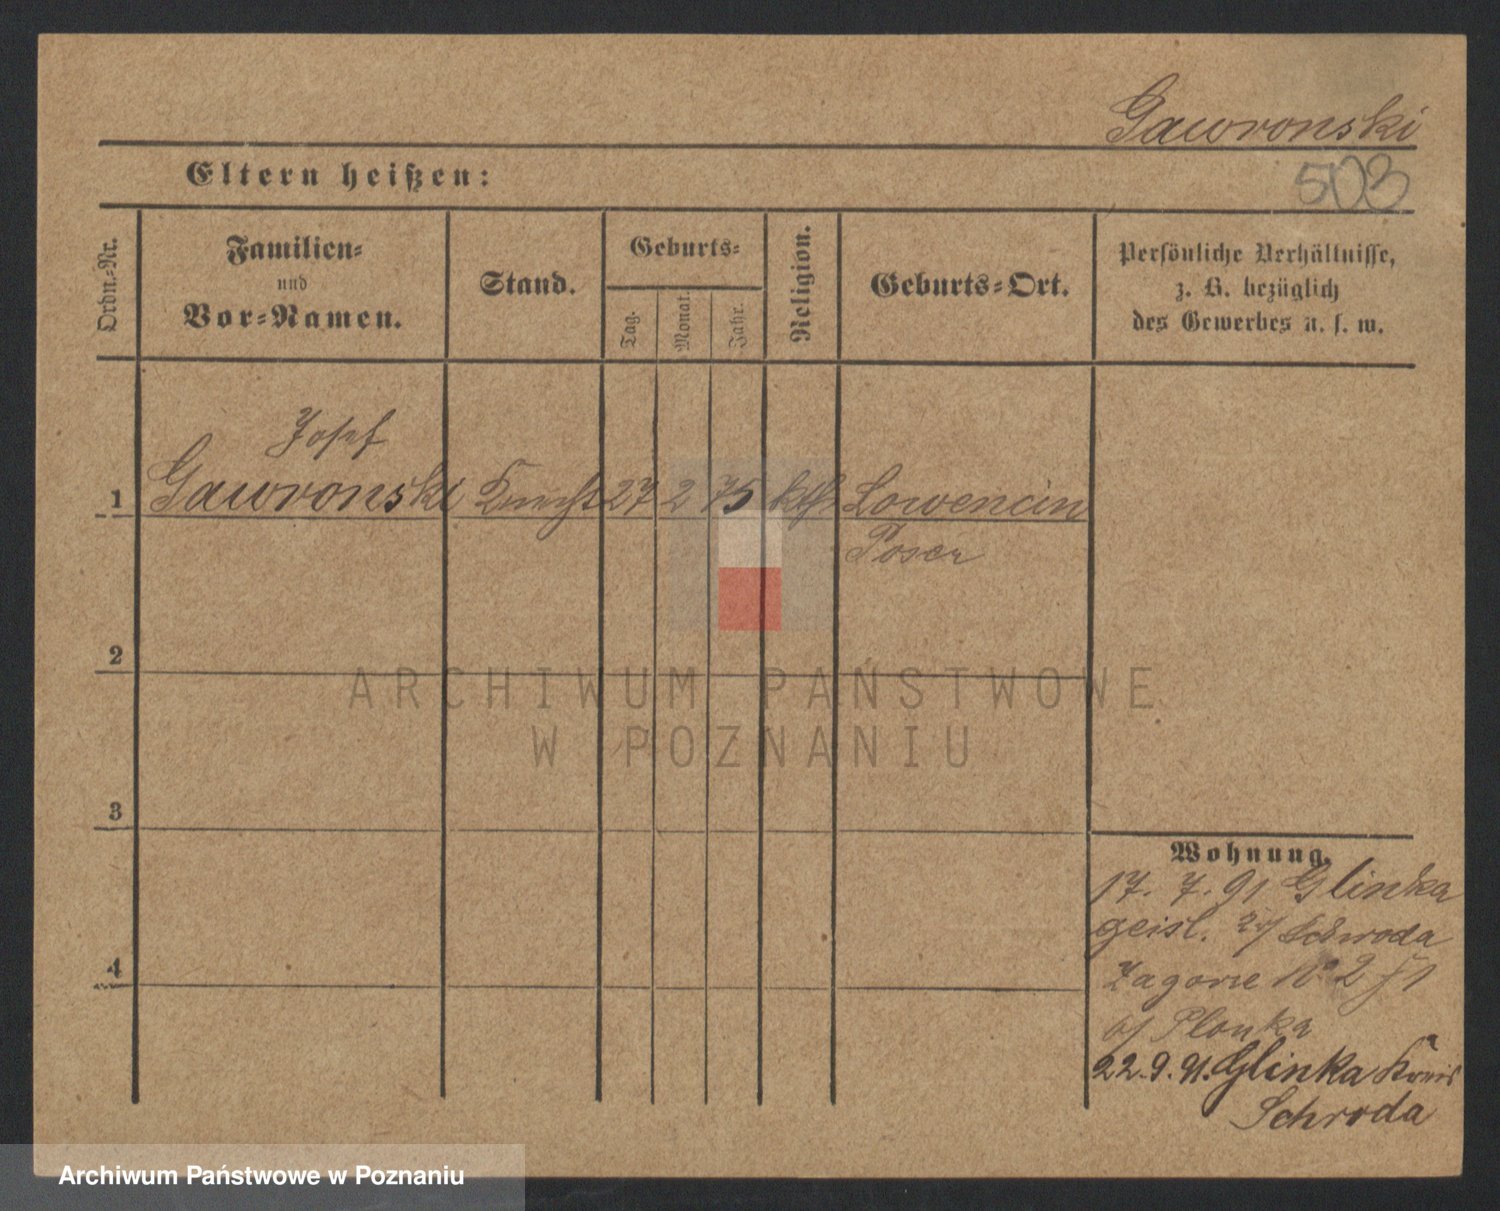 Gawronski
Eltern heißen:
503
Ordn.-Nr.
Familien-
und
Vor-Namen.
Stand.
Geburts-
Tag.
Monat.
Jahr.
Religion.
Geburts-Ort.
Persönliche Verhältnisse,
z. B. bezüglich
des Gewerbes u. s. w.
Josef
1 Gawronski Knecht 27 2 75 kth Lowencin
Posen
2
ARCHIWUM PAŃSTWOWE
W POZNANIU
3
Wohnung.
17. 7. 91 Glinka
geisl. Schroda
4
Zagorze No 2
b/ Plonka
22. 9. 91. Glinka Kreis
Schroda
Archiwum Państwowe w Poznaniu